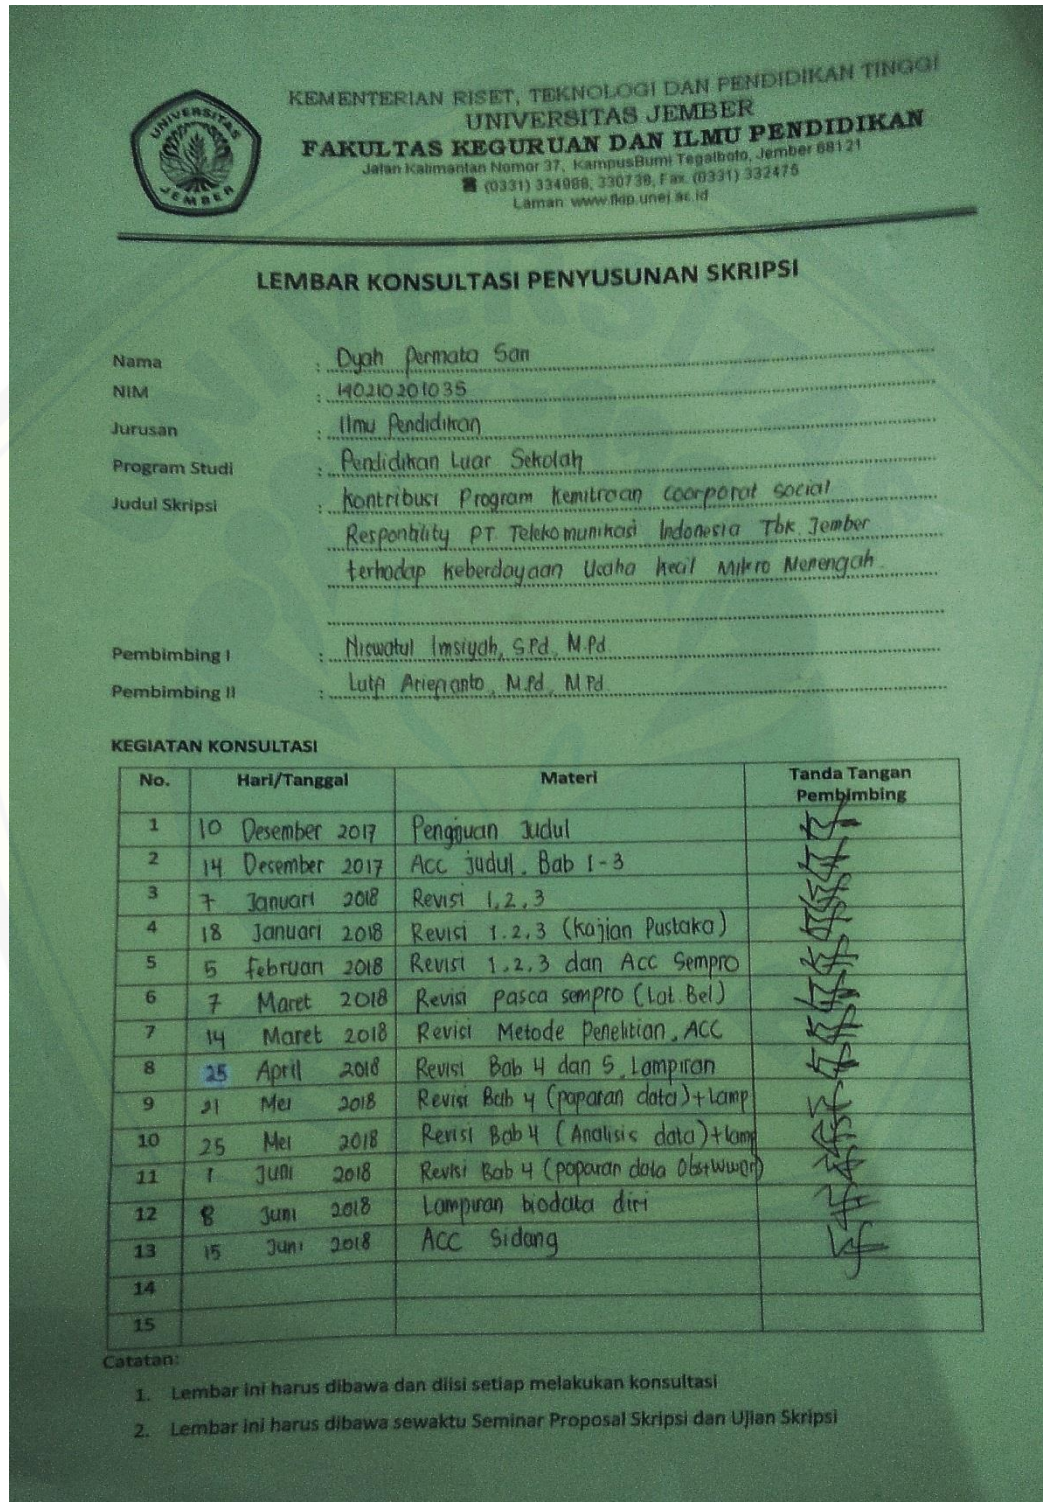 UNIVERSITAS
JEMBER
KEMENTERIAN RISET, TEKNOLOGI DAN PENDIDIKAN TINGGI
UNIVERSITAS JEMBER
FAKULTAS KEGURUAN DAN ILMU PENDIDIKAN
Jalan Kalimantan Nomor 37, KampusBumi Tegalboto, Jember 68121
☎ (0331) 334988, 330738, Fax. (0331) 332475
Laman www.fkip.unej.ac.id
LEMBAR KONSULTASI PENYUSUNAN SKRIPSI
Nama : Dyah Permata Sari
NIM : 140210201035
Jurusan : Ilmu Pendidikan
Program Studi : Pendidikan Luar Sekolah
Judul Skripsi : Kontribusi Program Kemitraan Coorporat Social
Responbility PT Telekomunikasi Indonesia Tbk. Jember
terhadap Keberdayaan Usaha Kecil Mikro Menengah
Pembimbing I : Niswatul Imsiyah, S.Pd, M.Pd
Pembimbing II : Lutfi Ariefianto, M.Pd, M.Pd
KEGIATAN KONSULTASI
No. Hari/Tanggal Materi Tanda Tangan Pembimbing
1 10 Desember 2017 Pengajuan Judul
2 14 Desember 2017 Acc judul. Bab 1-3
3 7 Januari 2018 Revisi 1,2,3
4 18 Januari 2018 Revisi 1.2,3 (Kajian Pustaka)
5 5 Februari 2018 Revisi 1,2,3 dan Acc Sempro
6 7 Maret 2018 Revisi pasca sempro (Lat. Bel)
7 14 Maret 2018 Revisi Metode Penelitian, ACC
8 25 April 2018 Revisi Bab 4 dan 5, Lampiran
9 21 Mei 2018 Revisi Bab 4 (paparan data)+Lamp
10 25 Mei 2018 Revisi Bab 4 (Analisis data)+lamp
11 1 Juni 2018 Revisi Bab 4 (paparan data
12 8 Juni 2018 Lampiran biodata diri
13 15 Juni 2018 ACC Sidang
14
15
Catatan:
1. Lembar ini harus dibawa dan diisi setiap melakukan konsultasi
2. Lembar ini harus dibawa sewaktu Seminar Proposal Skripsi dan Ujian Skripsi